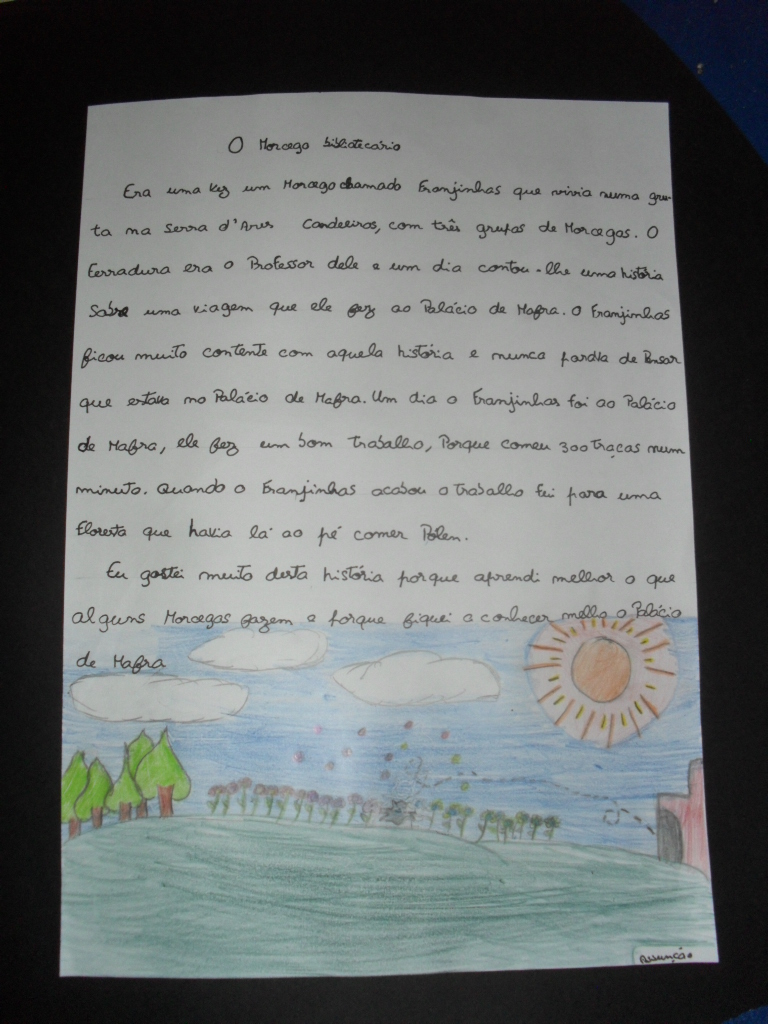 O Morcego bibliotecário
Era uma vez um Morcego chamado Franjinhas que vivia numa gru-
ta na serra d'Aires Candeeiros, com três grupos de Morcegos. O
Ferradura era o Professor dele e um dia contou-lhe uma história
sobre uma viagem que ele fez ao Palácio de Mafra. O Franjinhas
ficou muito contente com aquela história e nunca parava de Pensar
que estava no Palácio de Mafra. Um dia o Franjinhas foi ao Palácio
de Mafra, ele fez um bom trabalho, Porque comeu 300 traças num
minuto. Quando o Franjinhas acabou o trabalho foi para uma
floresta que havia lá ao pé comer Pólen.
Eu gostei muito desta história porque aprendi melhor o que
alguns Morcegos fazem e porque fiquei a conhecer o Palácio
de Mafra
Assunção